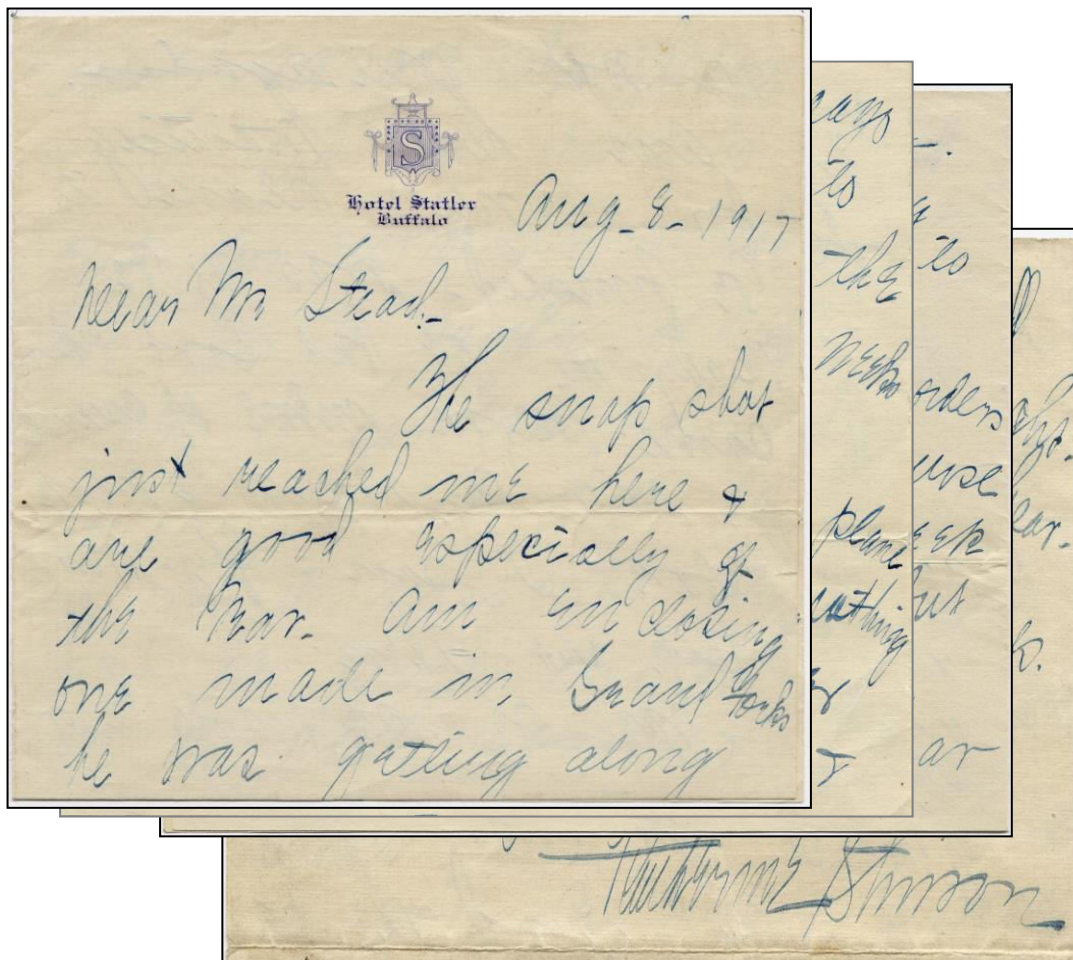 S
Hotel Statler
Buffalo
Aug-8-1917
Dear Mr Stead-
The snap shot
just reached me here &
are good especially of
the Bear. Am enclosing
one made in Grand Forks
he was getting along
says
to
the
weeks
plane
to
orders
ar
k.
Katherine Stinson